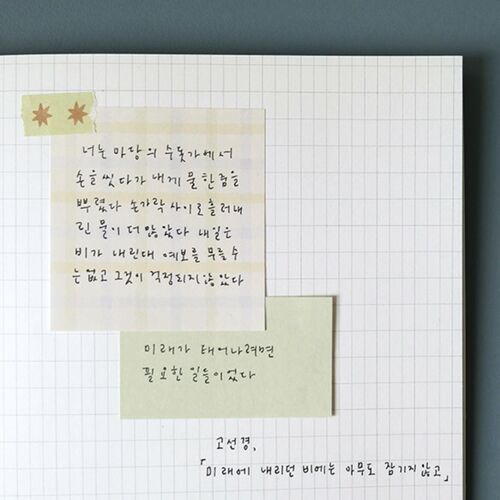 너는 마당의 수돗가에서
손을 씻다가 내게 물 한 줌을
뿌렸다 손가락 사이로 흘러내
린 물이 더 많았다 내일은
비가 내린대 예보를 무를 수
는 없고 그것이 걱정되지 않았다
미래가 태어나려면
필요한 일들이었다
고선경,
「미래에 내리던 비에는 아무도 잠기지 않고」